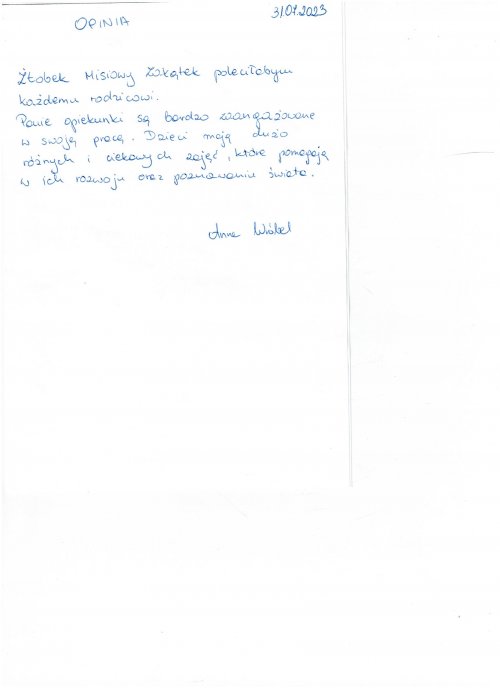 31.01.2023
OPINIA
Żłobek Misiowy Zakątek poleciłabym
każdemu rodzicowi.
Panie opiekunki są bardzo zaangażowane
w swoją pracę. Dzieci mają dużo
różnych i ciekawych zajęć, które pomagają
w ich rozwoju oraz poznawaniu świata.
Anna Wróbel